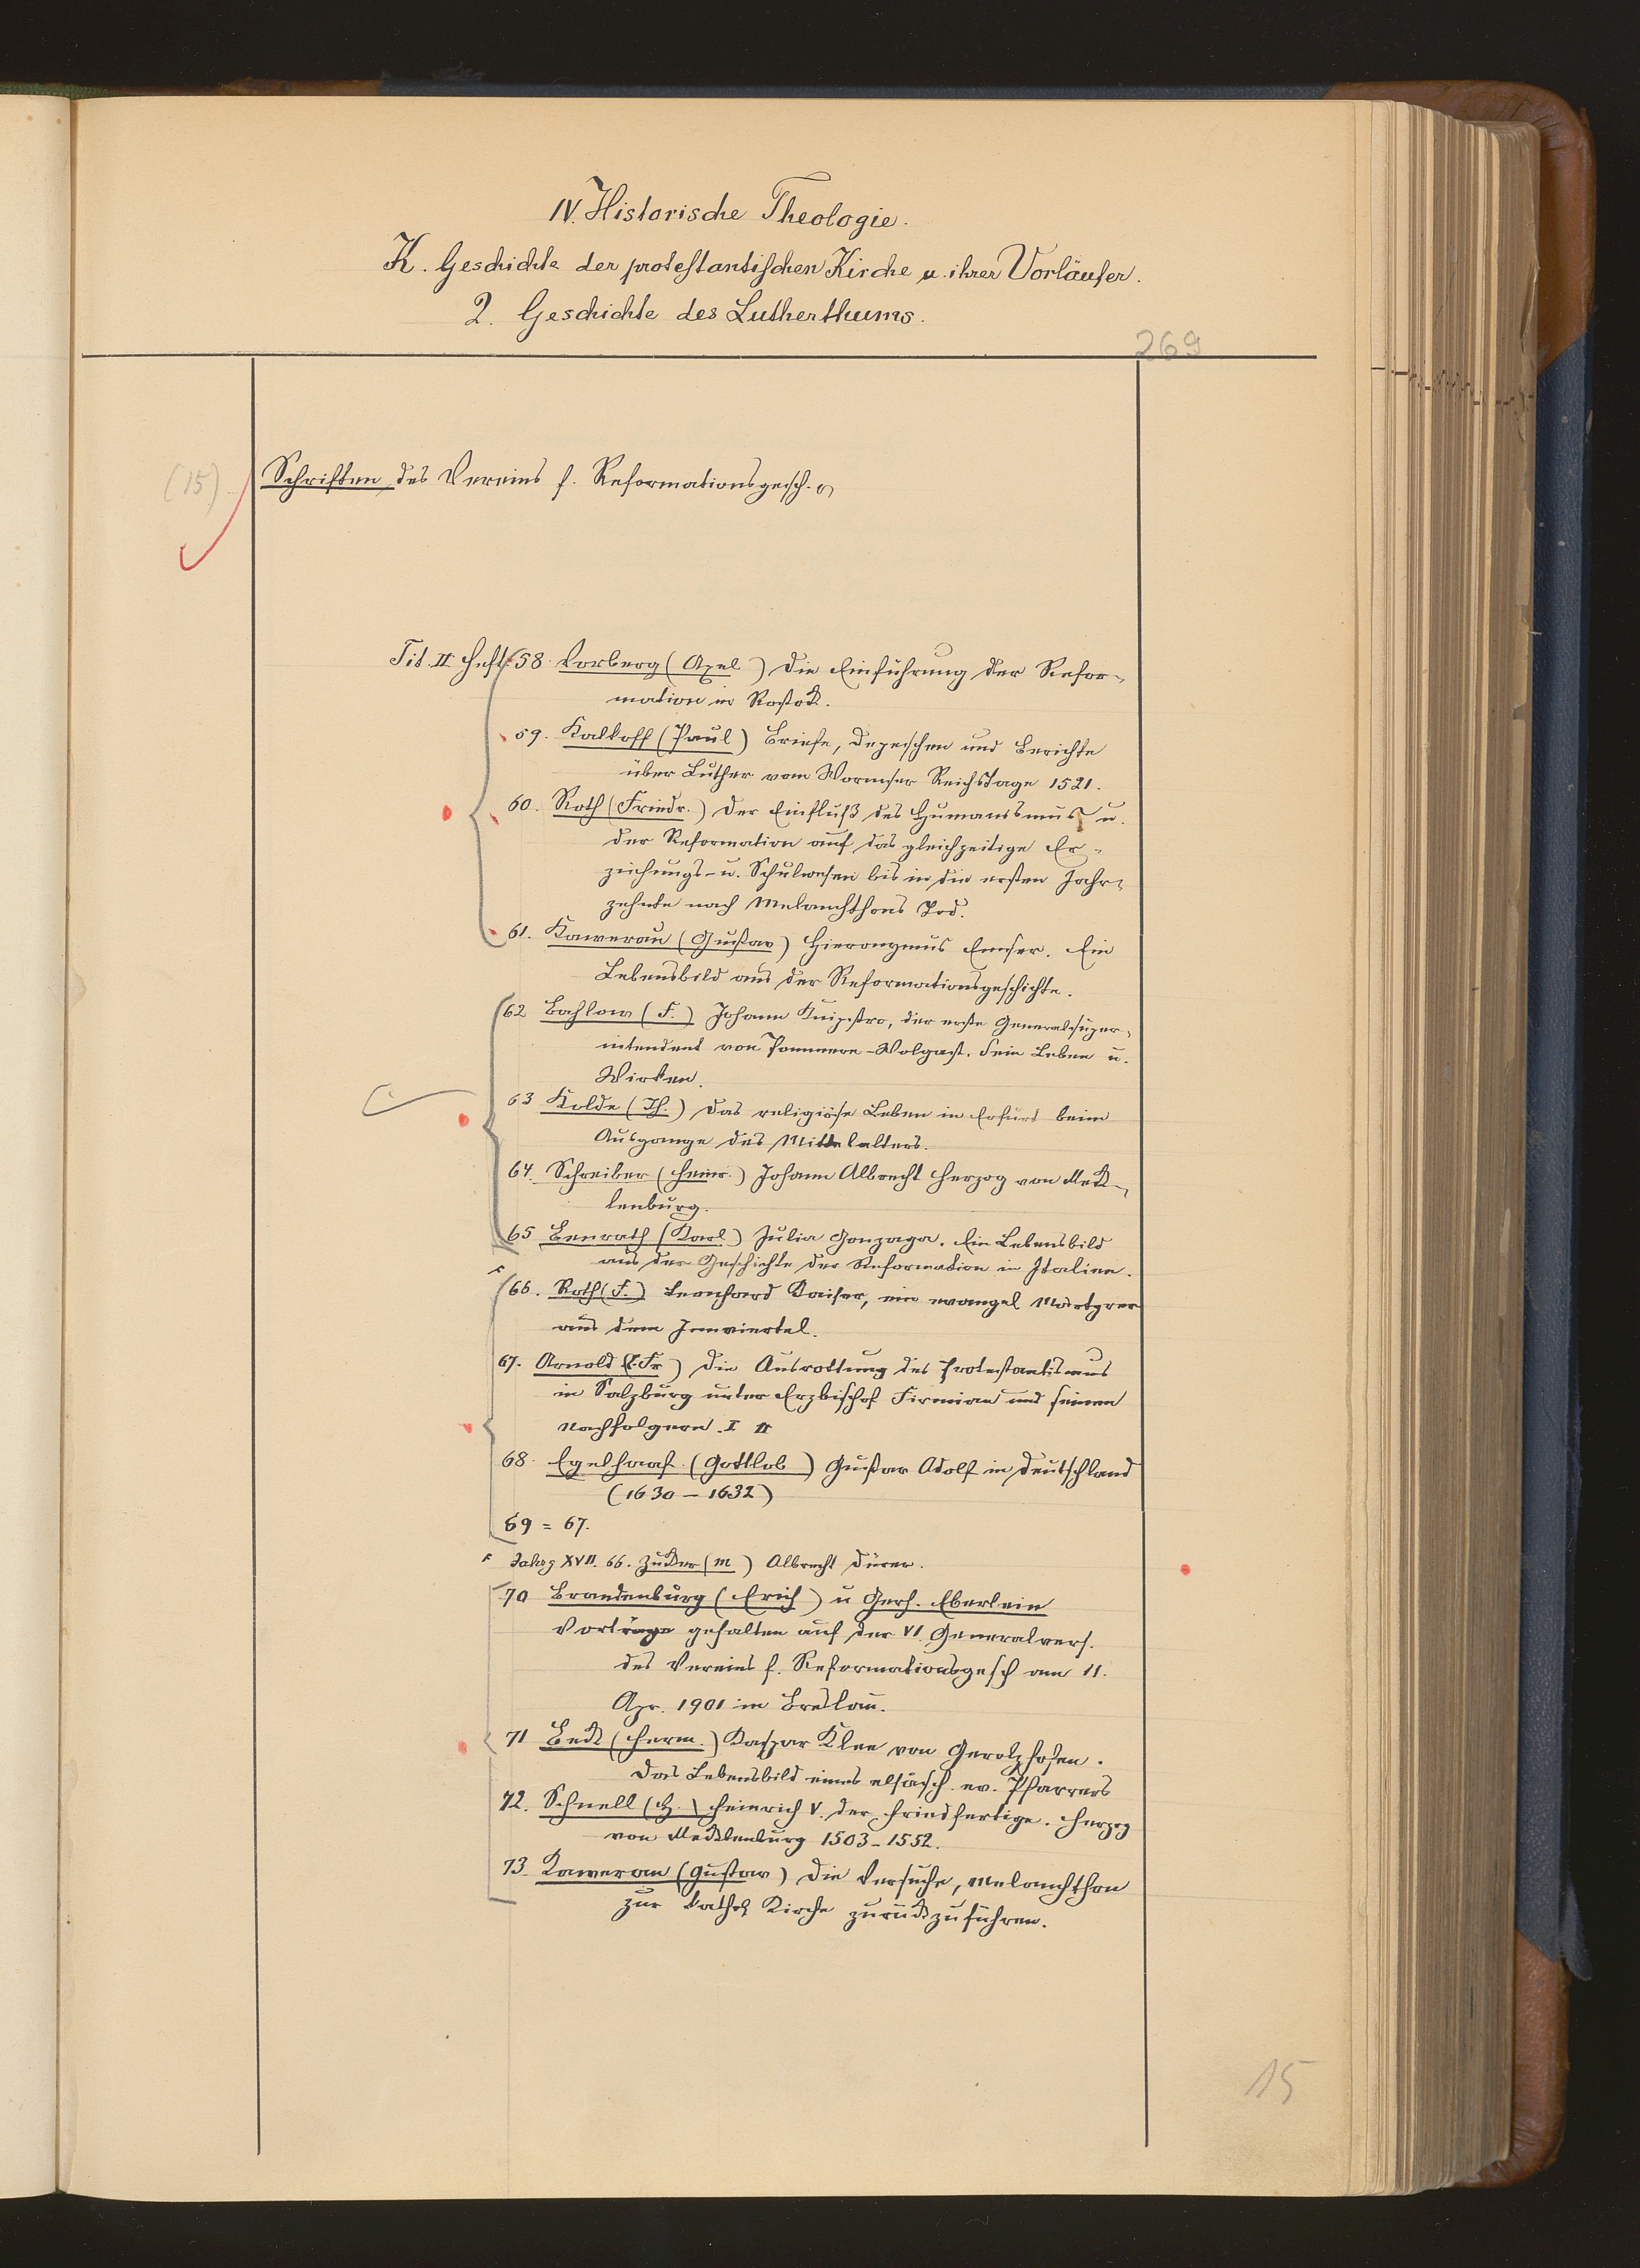 IV. Historische Theologie.
K. Geschichte der protestantischen Kirche u. ihrer Vorläufer.
2. Geschichte des Lutherthums.
269
(15) Schriften des Vereins f. Reformationsgesch.
Tit. II Heft 58. Vorberg (Axel) Die Einführung der Refor-
mation in Rostock.
59. Kalkoff (Paul) Briefe, Depeschen und Berichte
über Luther vom Wormser Reichstage 1521.
60. Roth (Friedr.) Der Einfluß des Humanismus u.
der Reformation auf das gleichzeitige Er-
ziehungs- u. Schulwesen bis in die ersten Jahr-
zehnte nach Melanchthons Tod.
61. Kawerau (Gustav) Hieronymus Emser. Ein
Lebensbild aus der Reformationsgeschichte.
62 Bahlow (F.) Johann Knipstro, der erste Generalsuper-
intendent von Pommern-Wolgast. Sein Leben u.
Wirken.
63 Kolde (Th.) Das religiöse Leben in Erfurt beim
Ausgange des Mittelalters.
64. Schreiber (Heinr.) Johann Albrecht Herzog von Meck-
lenburg.
65 Benrath (Karl) Julia Gonzaga. Ein Lebensbild
aus der Geschichte der Reformation in Italien.
66. Roth (F.) Leonhard Kaiser, ein evangel Märtyrer
aus dem Innviertel.
67. Arnold (C. Fr) Die Ausrottung des Protestantismus
in Salzburg unter Erzbischof Firmian und seinen
Nachfolgern. I II
68. Egelhaaf (Gottlob) Gustav Adolf in Deutschland
(1630 – 1632)
69 = 67.
Jahrg XVII. 66. Zucker (M) Albrecht Dürer.
70 Brandenburg (Erich) u Gerh. Eberlein
Vorträge gehalten auf der VI. Generalvers.
des Vereins f. Reformationsgesch am 11.
Apr. 1901 in Breslau.
71 Beck (Herm.) Kaspar Klee von Gerolzhofen.
Das Lebensbild eines elsäsch. ev. Pfarrers
72. Schnell (H.) Heinrich V. der Friedfertige. Herzog
von Mecklenburg 1503–1552.
73. Kawerau (Gustav) Die Versuche, Melanchthon
zur kathol Kirche zurückzuführen.
15